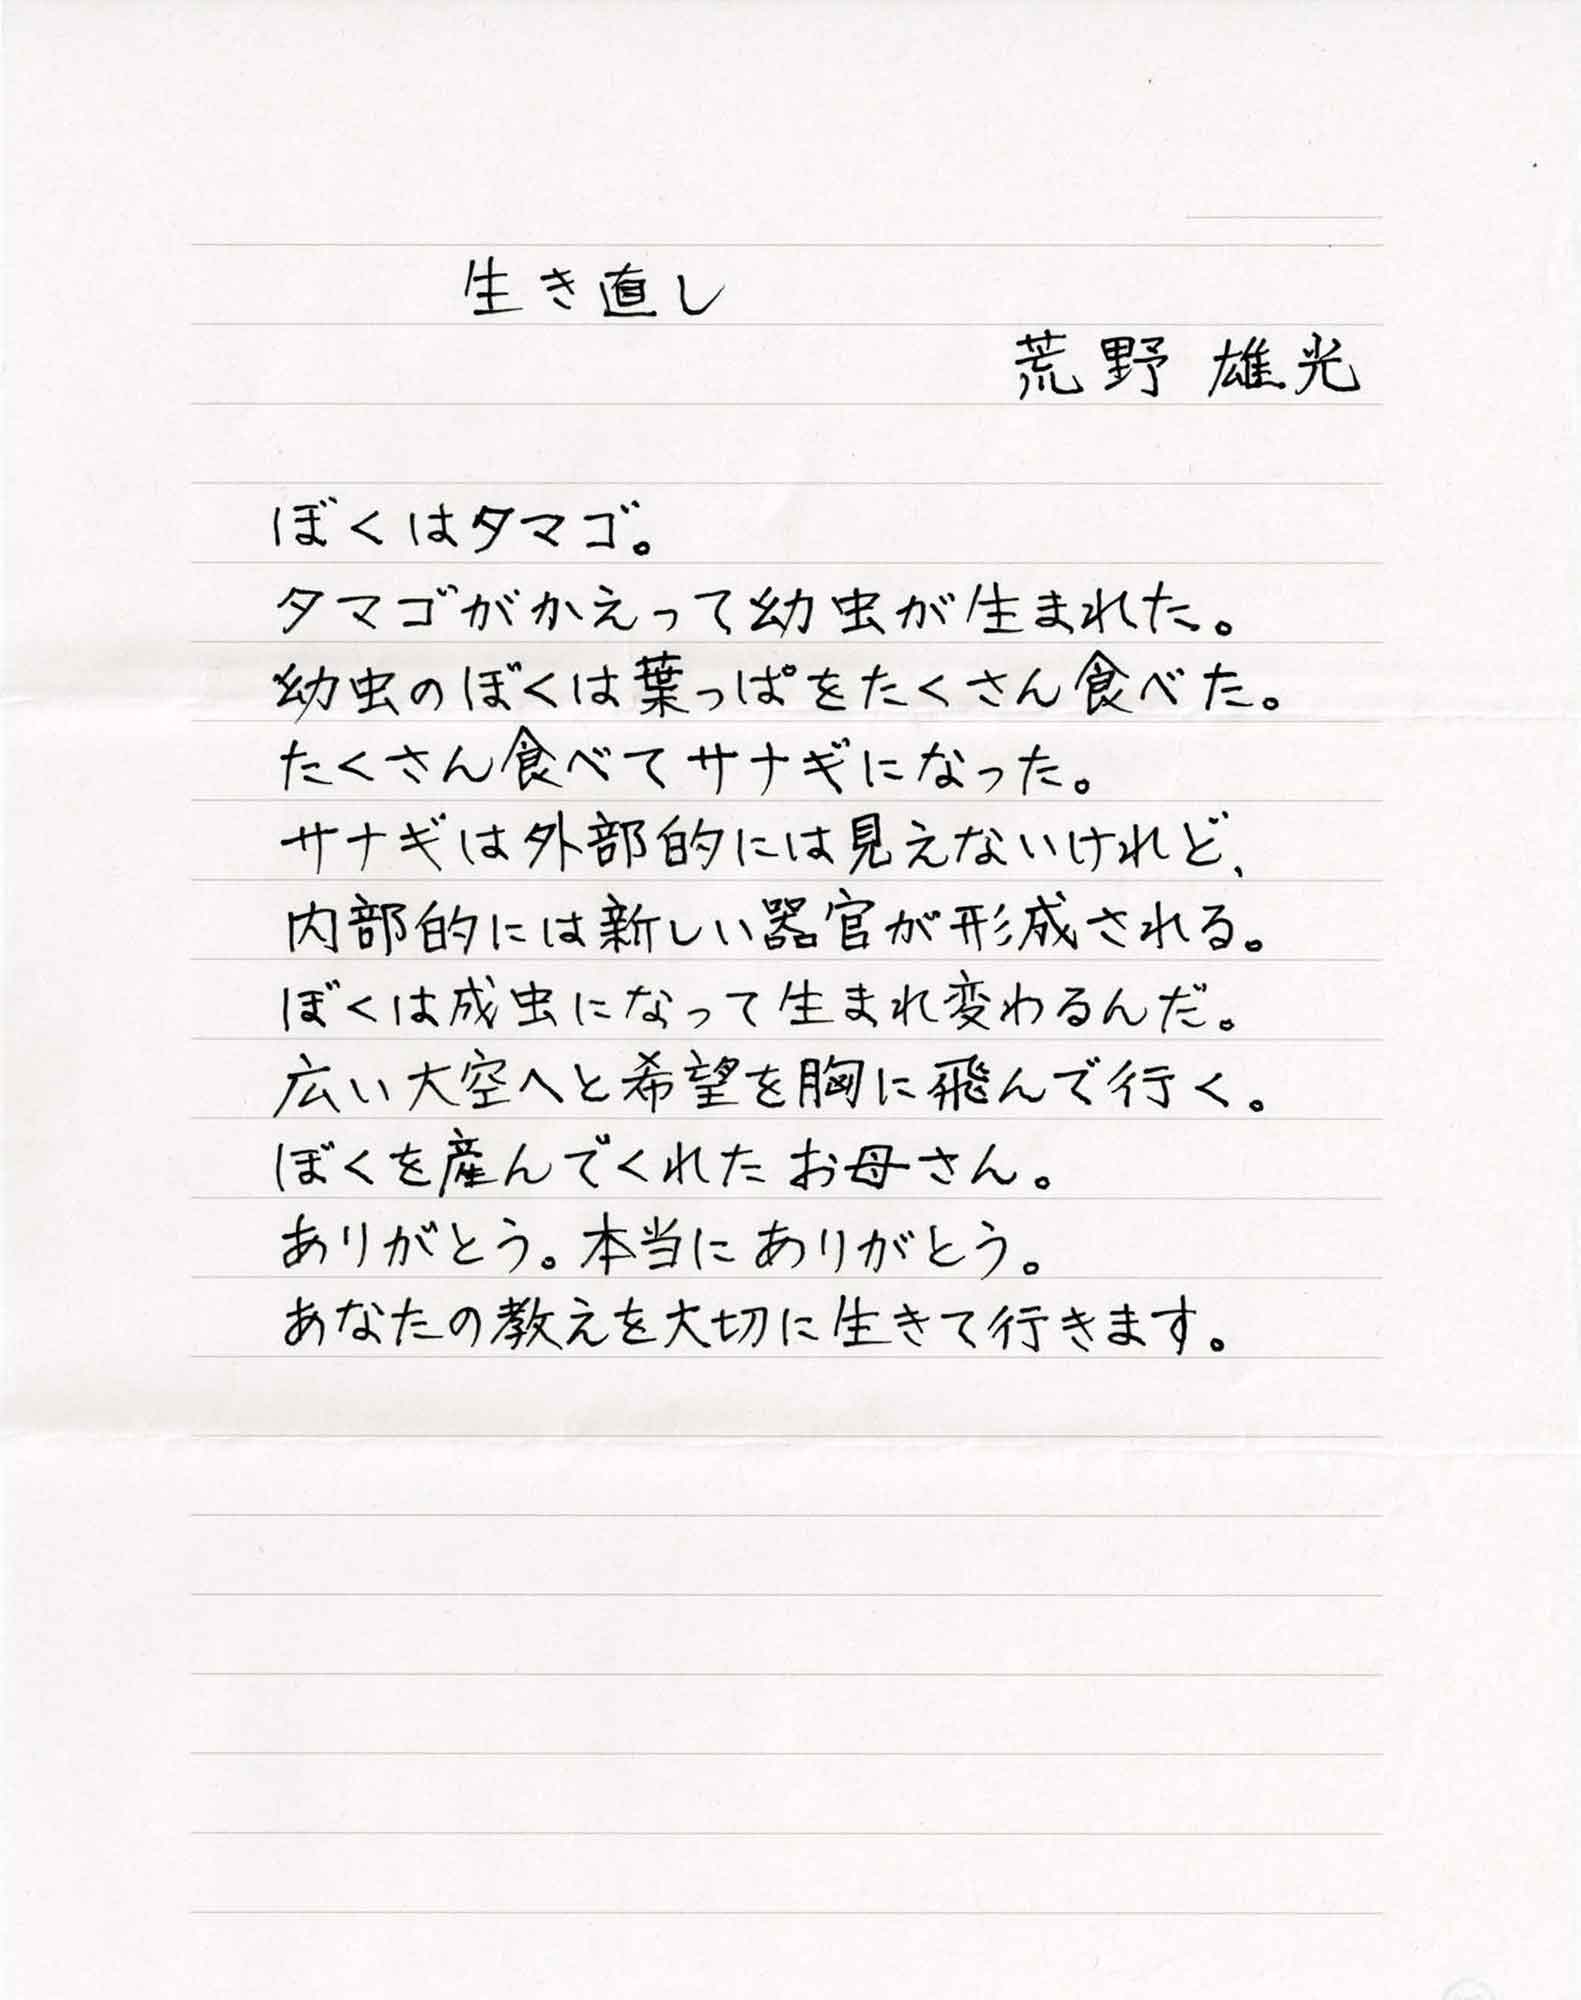 生き直し
荒野 雄光
ぼくはタマゴ。
タマゴがかえって幼虫が生まれた。
幼虫のぼくは葉っぱをたくさん食べた。
たくさん食べてサナギになった。
サナギは外部的には見えないけれど、
内部的には新しい器官が形成される。
ぼくは成虫になって生まれ変わるんだ。
広い大空へと希望を胸に飛んで行く。
ぼくを産んでくれたお母さん。
ありがとう。本当にありがとう。
あなたの教えを大切に生きて行きます。